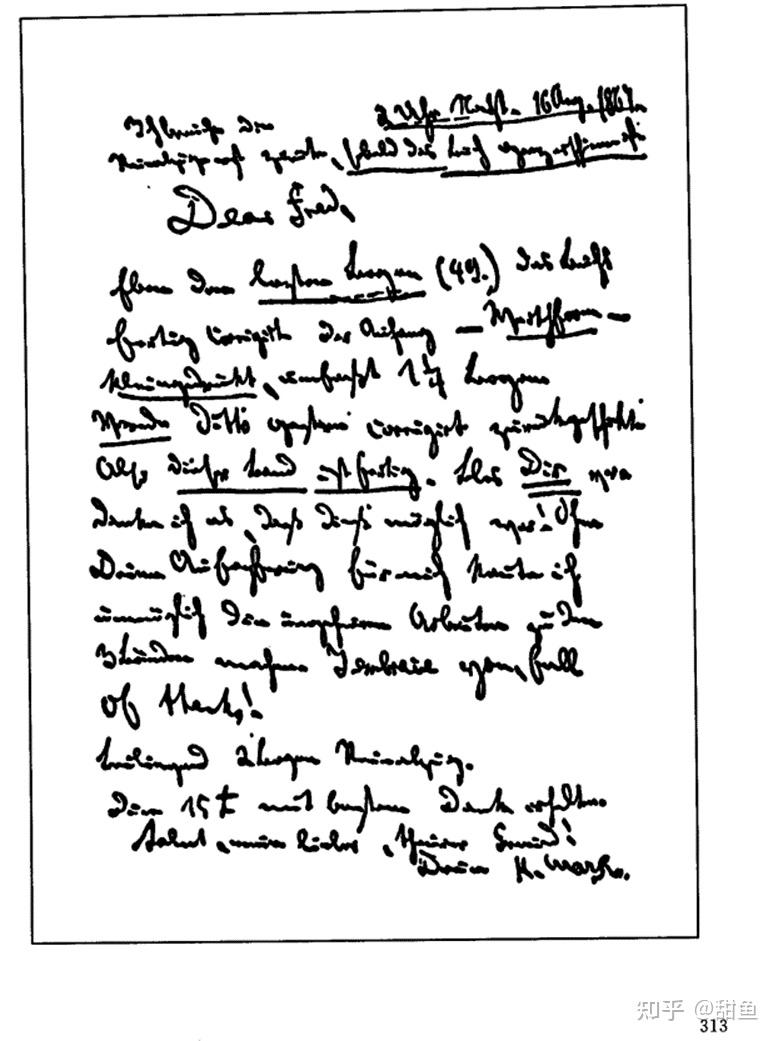 2 Uhr Nacht. 16 Aug. 1867.
Ich brauche die
Reinabzüge zurück, sobald das Buch ganz erschienen ist.
Dear Fred,
Eben den letzten Bogen (49.) des Buchs
fertig corrigirt. Der Anhang – Werthform –
kleingedruckt, umfaßt 1 1/4 Bogen.
Vorrede ditto gestern corrigirt zurückgeschickt.
Also dieser Band ist fertig. Blos Dir ver-
danke ich es, daß dieß möglich war! Ohne
Deine Aufopfrung für mich konnte ich
unmöglich die ungeheuren Arbeiten zu den
3 Bänden machen. I embrace you, full
of thanks!
Beiliegend 2 Bogen Reinabzug.
Die 15 £ mit bestem Dank erhalten.
Salut, mein lieber, theurer Freund!
Dein K. Marx.
知乎 @甜鱼
313